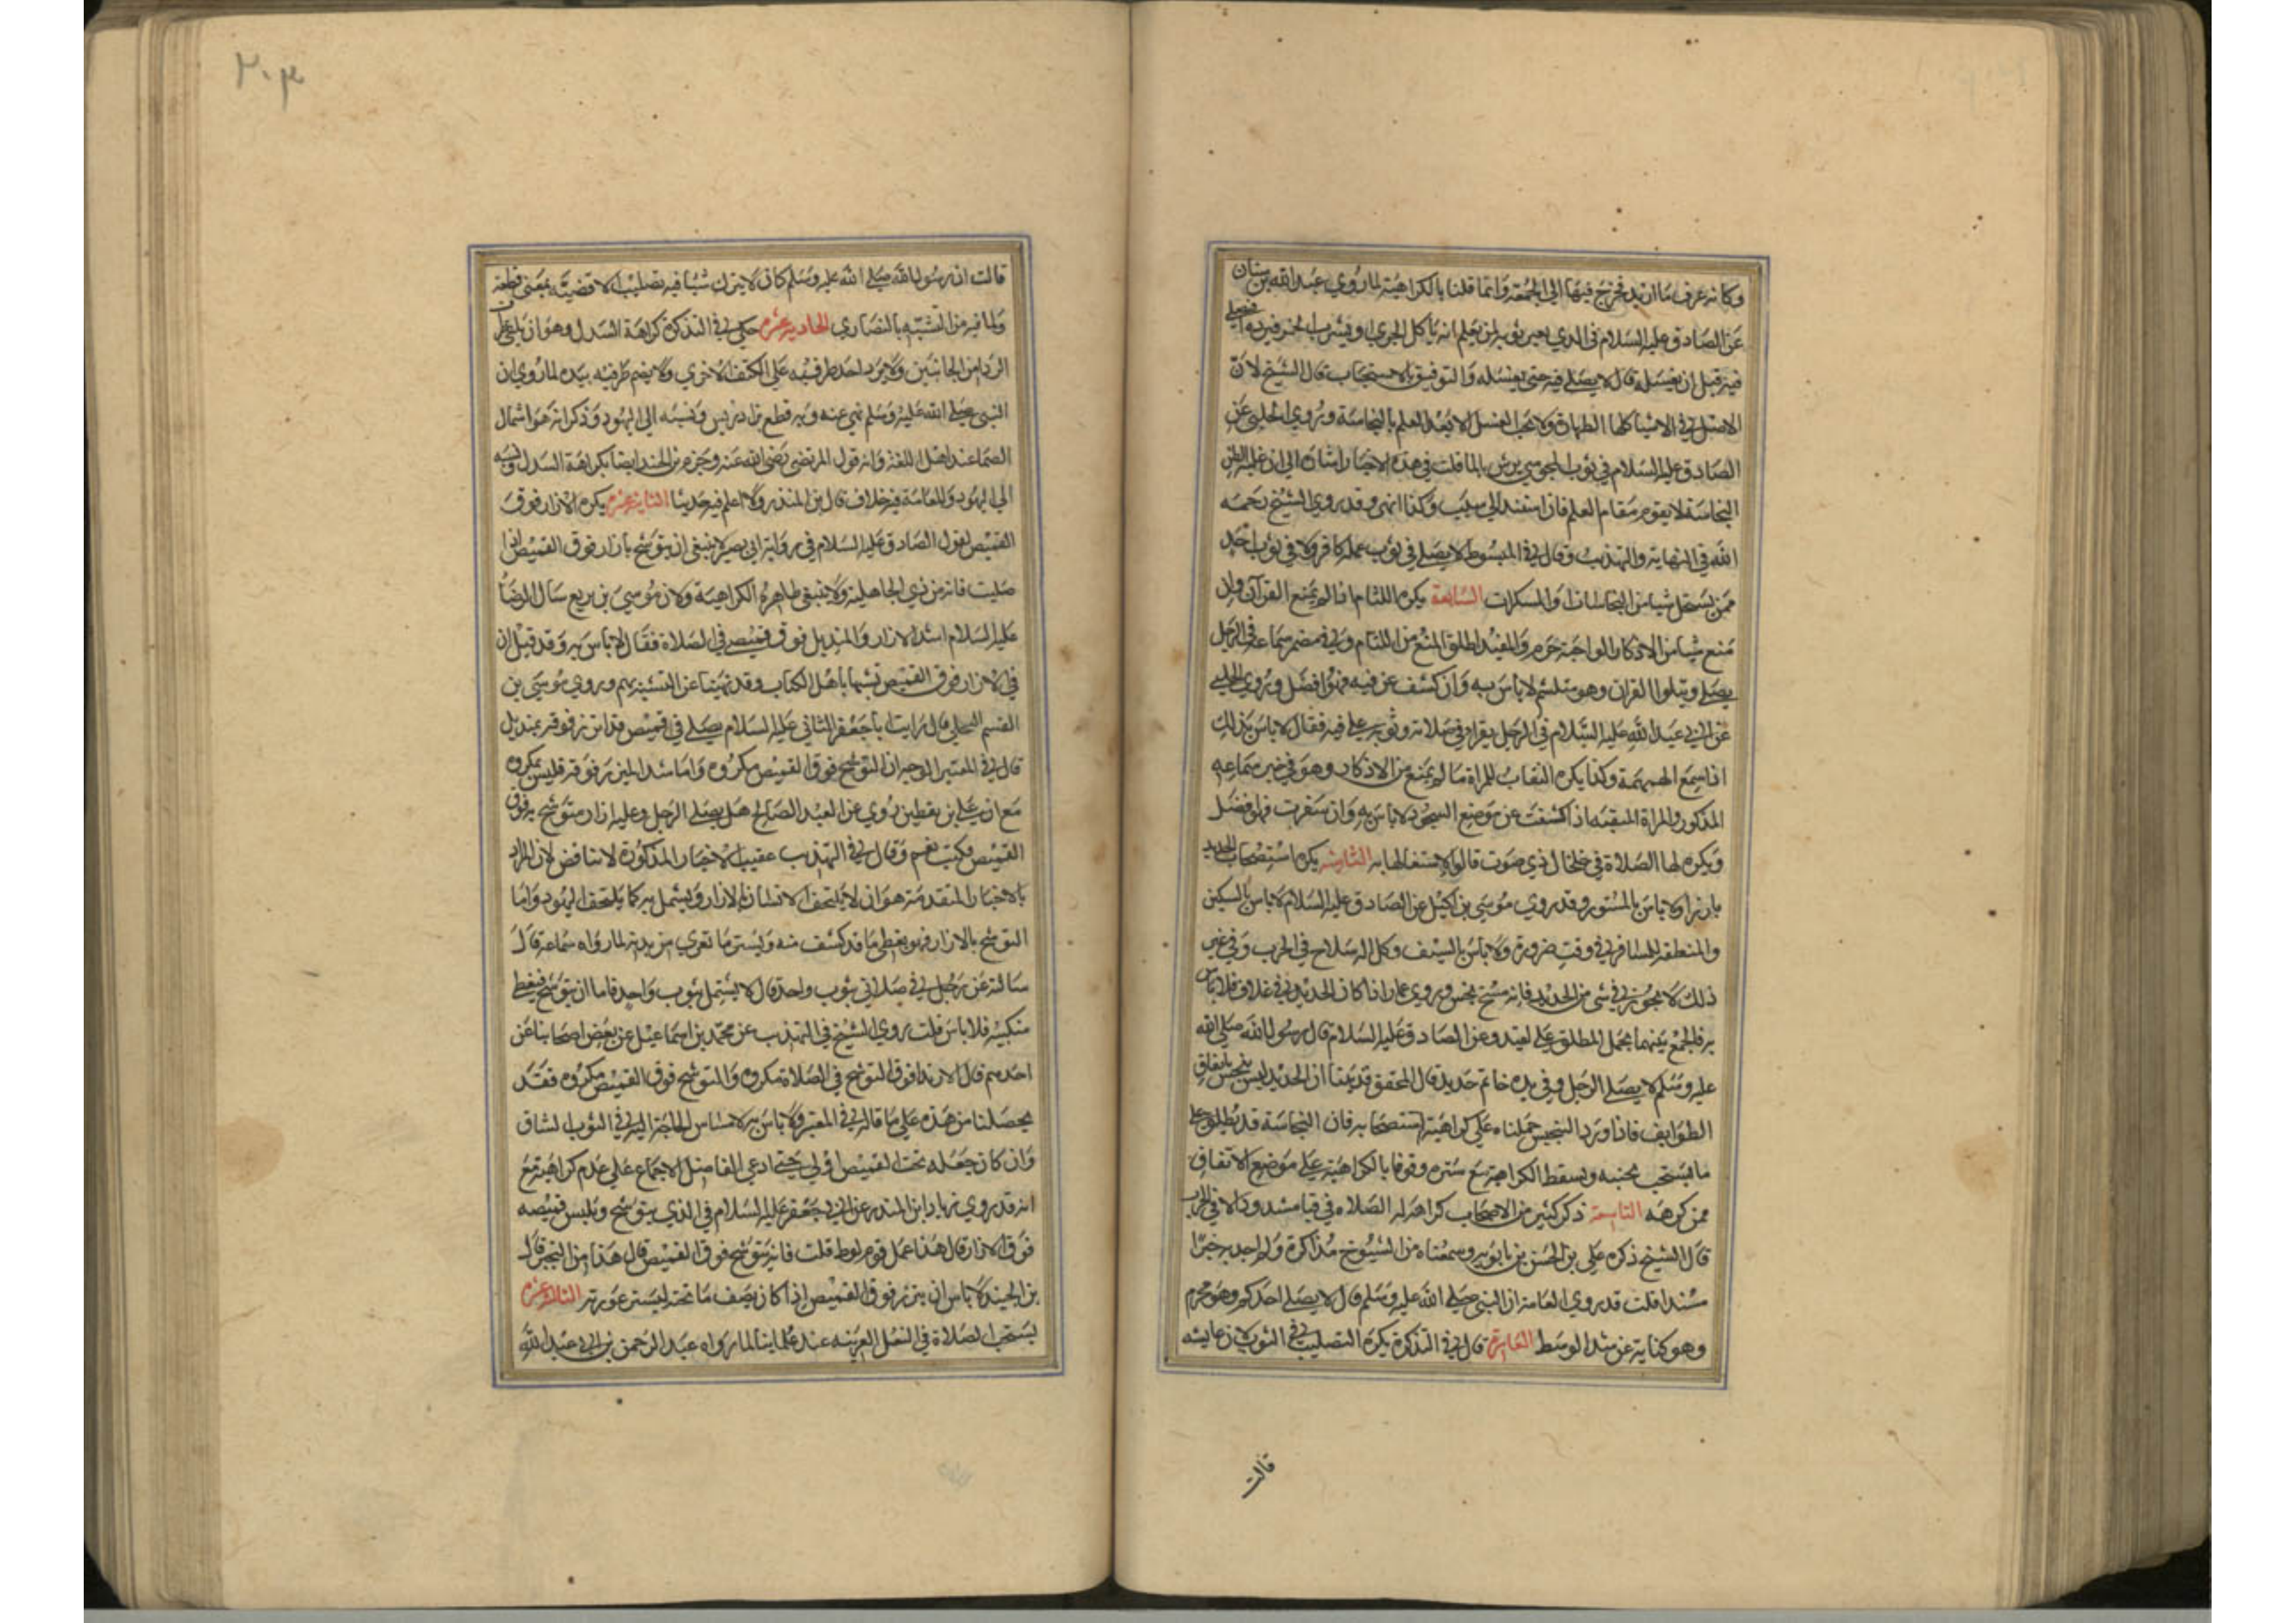 وكانه عرف ما اريد تخرج فيها الى الجمعة وانما قلنا بالكراهية لما روي عبد الله بن سنان
عن الصادق عليه السلام في الذي يعير ثوبه لمن يعلم انه ياكل الجري او يشرب الخمر فيرده ايصلي
فيه قبل ان يغسله قال لا يصلي فيه حتى يغسله والتوفيق بالاستحباب قال الشيخ لان
الاصل في الاشيا كلها الطهارة ولا يجب الغسل الا بعد العلم بالنجاسة وروي الحلبي عن
الصادق عليه السلام في ثوب المجوسي يرش بالما قلت في هذه الاخبار اشارة الى ان غلبة الظن
النجاسة لا يقوم مقام العلم فان استند الى سبب وكذا انهى وقد روي الشيخ رحمه
الله في النهاية والتهذيب وقال في المبسوط لا يصلي في ثوب عمله كافر ولا في ثوب اخذ
ممن يستحل شيا من النجاسات او المسكرات السابعة يكره اللثام اذا لم يمنع القراة ولان
منع شيا من الاذكار الواجبة حرم والمفيد اطلق المنع من اللثام وفي مضمر سماعة في الرجل
يصلي ويتلوا القران وهو متلثم لا باس به وان كشف عن فيه فهو افضل وروي الحلبي
عن ابي عبد الله عليه السلام في الرجل يقرا في صلاته وثوبه على فيه فقال لا باس بذلك
اذا سمع الهمهمة وكذا يكره النقاب للمراة ما لم يمنع من الاذكار وهو في خبر سماعة
المذكور والمراة المتنقبة اذا كشفت عن موضع السجود لا باس به وان سفرت فهو افضل
ويكره لها الصلاة في خلخال ذي صوت قالوا لاشتغالها به الثامنة يكره استصحاب الحديد
بارزا ولا باس بالمستور وقد روي موسى بن اكيل عن الصادق عليه السلام لا باس بالسكين
والمنطقة للمسافر في وقت ضرورة ولا باس بالسيف وكل الة سلاح في الحرب وفي غير
ذلك لا يجوز في شي من الحديد فانه مسخ نجس وروي عمار اذا كان الحديد في غلاف فلا باس
به فالجمع بينهما بحمل المطلق على المقيد وعن الصادق عليه السلام قال رسول الله صلى الله
عليه وسلم لا يصلي الرجل وفي يده خاتم حديد قال المحقق قد بينا ان الحديد ليس بنجس باتفاق
الطوايف فاذا ورد التنجيس حملناه على كراهية استصحابه فان النجاسة قد يطلق على
ما يستحب تجنبه ويسقط الكراهية مع ستره وقوفا بالكراهية على موضع الاتفاق
ممن كرهه التاسعة ذكر كثير من الاصحاب كراهة الصلاة في قبا مشدود الا في الحرب
قال الشيخ ذكره علي بن الحسن بن بابويه وسمعناه من الشيوخ مذاكرة ولم اجد به خبرا
مسندا قلت قد روي العامة ان النبي صلى الله عليه وسلم قال لا يصلي احدكم وهو محزم
وهو كناية عن شد الوسط العاشرة قال في التذكرة يكره التصليب في الثوب لان عايشة
قالت
٢٠٣
قالت ان رسول الله صلى الله عليه وسلم كان لا يترك شيا فيه تصليب الا قضبه بمعنى قطعه
ولما فيه من التشبه بالنصاري الحادية عشره حكي في التذكرة كراهة السدل وهو ان يلقي طرف
الردا من الجانبين ولا يرد احد طرفيه على الكتف الاخري ولا يضم طرفيه بيده لما روي ان
النبي صلى الله عليه وسلم نهى عنه وبه قطع بن ادريس ونسبه الى اليهود وذكر انه هو اشمال
الصما عند اهل اللغة وانه قول المرتضى رضي الله عنه وجزم بن الجنيد ايضا بكراهة السدل ونسبه
الى اليهود وللعامة فيه خلاف قال بن المنذر ولا اعلم فيه حديثا الثانية عشره يكره الازار فوق
القميص لقول الصادق عليه السلام في رواية ابي بصير لا ينبغي ان يتوشح بازار فوق القميص اذا
صليت فانه من زي الجاهلية ولا ينبغي ظاهره الكراهية ولان موسى بن بزيع سال الرضا
عليه السلام اشد الازار والمنديل فوق قميصي في الصلاة فقال لا باس به وقد قيل ان
في الازار فوق القميص تشبها باهل الكتاب وقد نهينا عن التشبه بهم وروي موسى بن
القسم البجلي قال رايت ابا جعفر الثاني عليه السلام يصلي في قميص قد اتزر فوقه بمنديل
قال في المعتبر الوجه ان التوشح فوق القميص مكروه واما شد الميزر فوقه فليس بمكروه
مع ان علي بن يقطين روي عن العبد الصالح هل يصلي الرجل وعليه ازار متوشح به فوق
القميص فكتب نعم وقال في التهذيب عقيب الاخبار المذكورة لا تناقض لان المراد
بالاخبار المتقدمة هو ان لا يلتحف الانسان بالازار ويشتمل به كما يلتحف اليهود واما
التوشح بالازار فهو يغطي ما قد كشف منه ويستر ما تعري من بدنه لما رواه سماعة قال
سالته عن رجل في صلاته بثوب واحد قال لا يشتمل بثوب واحد فاما ان يتوشح فيغطي
منكبيه فلا باس قلت روي الشيخ في التهذيب عن محمد بن اسماعيل عن بعض اصحابنا عن
احدهم قال الارتدا فوق التوشح في الصلاة مكروه والتوشح فوق القميص مكروه فقد
يحصل لنا من هذه على ما قاله في المعتبر ولا باس به لامساس الحاجة اليه في الثوب الشاق
وان كان جعله تحت القميص اولى حتى ادعى الفاضل الاجماع على عدم كراهيته مع
انه قد روي زياد ابن المنذر عن ابي جعفر عليه السلام في الذي يتوشح ويلبس قميصه
فوق الازار قال هذا عمل قوم لوط قلت فانه يتوشح فوق القميص قال هذا من التجبر قال
بن الجنيد لا باس ان يتزر فوق القميص اذا كان يصف ما تحته ليستر عورته الثالثة عشره
يستحب الصلاة في النعل العربية عند علماينا لما رواه عبد الرحمن بن ابي عبد الله